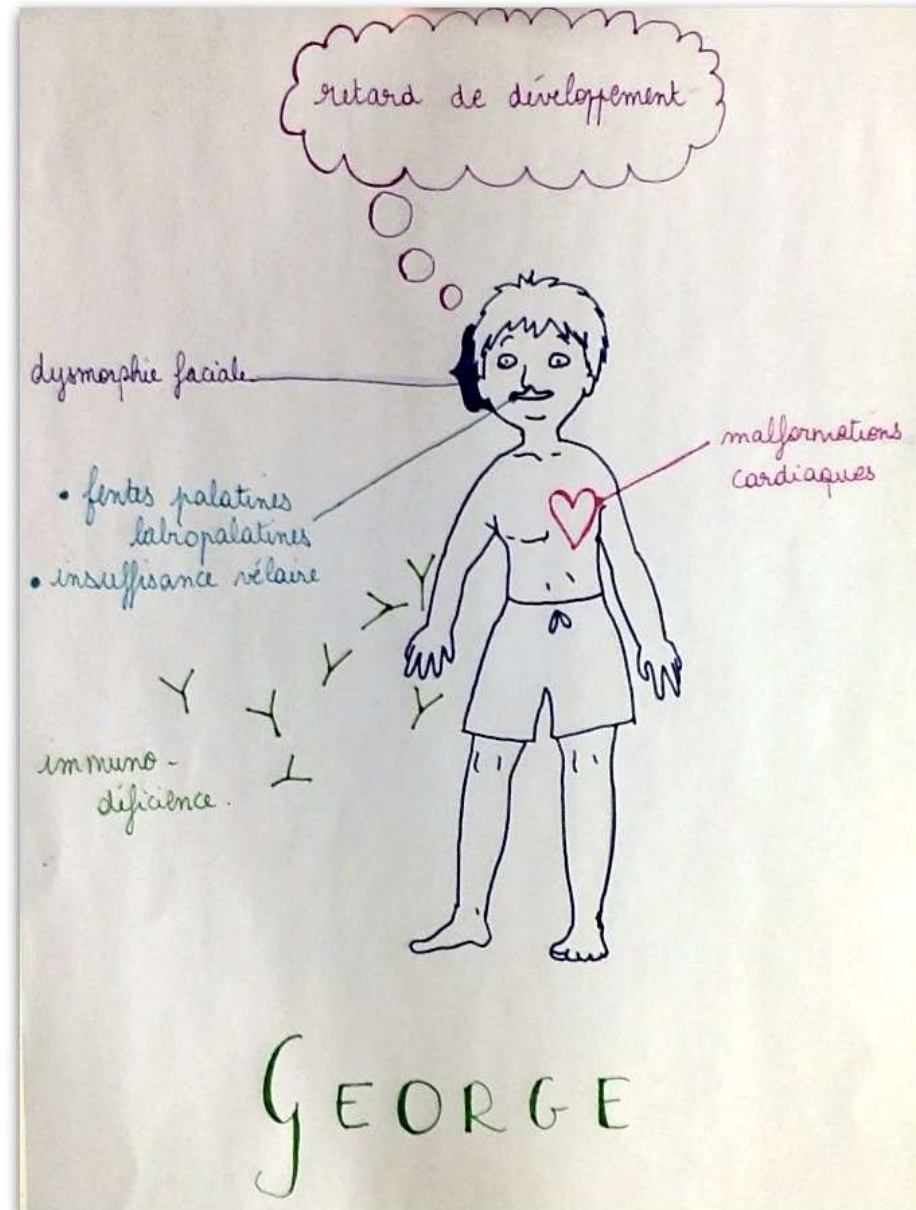 retard de développement
dysmorphie faciale
malformations
cardiaques
• fentes palatines
labropalatines
• insuffisance vélaire
immuno-
déficience.
GEORGE